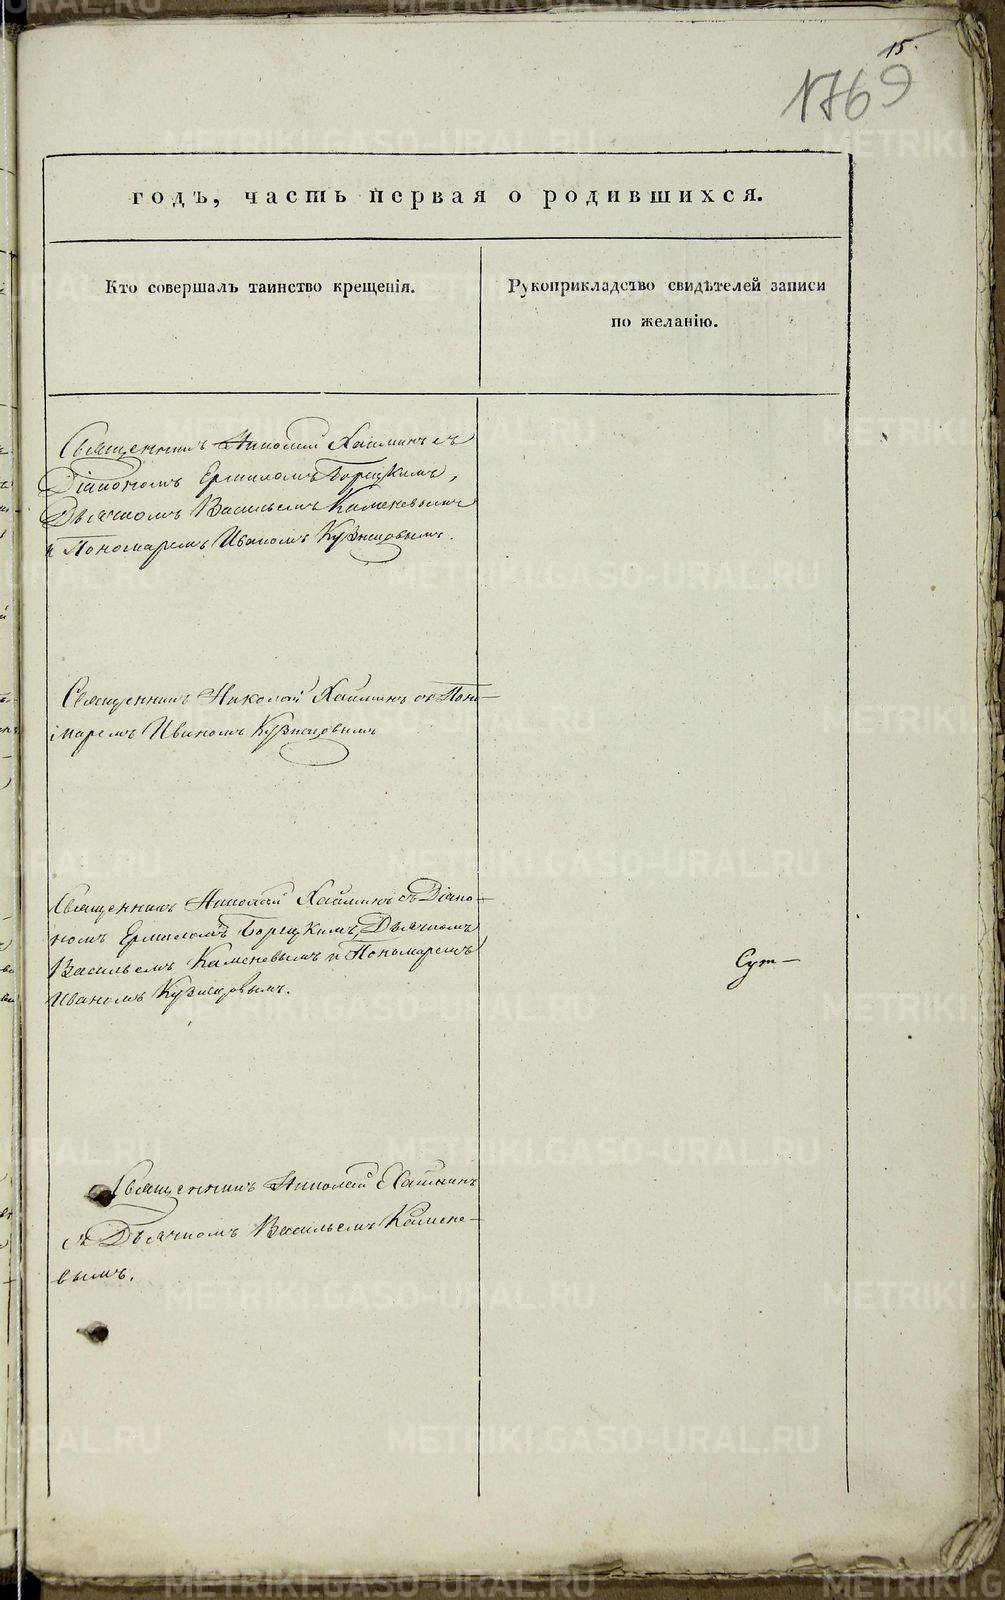 15.
1769
годъ, часть первая о родившихся.
Кто совершалъ таинство крещенія.
Рукоприкладство свидѣтелей записи
по желанію.
Священникъ Николай Хаминъ съ
Діакономъ Ермиломъ Борецкимъ,
Дьячкомъ Васильемъ Каменевымъ
и Пономаремъ Иваномъ Кузнецовымъ.
Священникъ Николай Хаминъ съ Поно-
маремъ Иваномъ Кузнецовымъ
Священникъ Николай Хаминъ съ Діако-
номъ Ермиломъ Борецкимъ, Дьячкомъ
Васильемъ Каменевымъ и Пономаремъ
Иваномъ Кузнецовымъ.
Сут-
Священникъ Николай Хаминъ
съ Дьячкомъ Васильемъ Камене-
вымъ.
METRIKI.GASO-URAL.RU